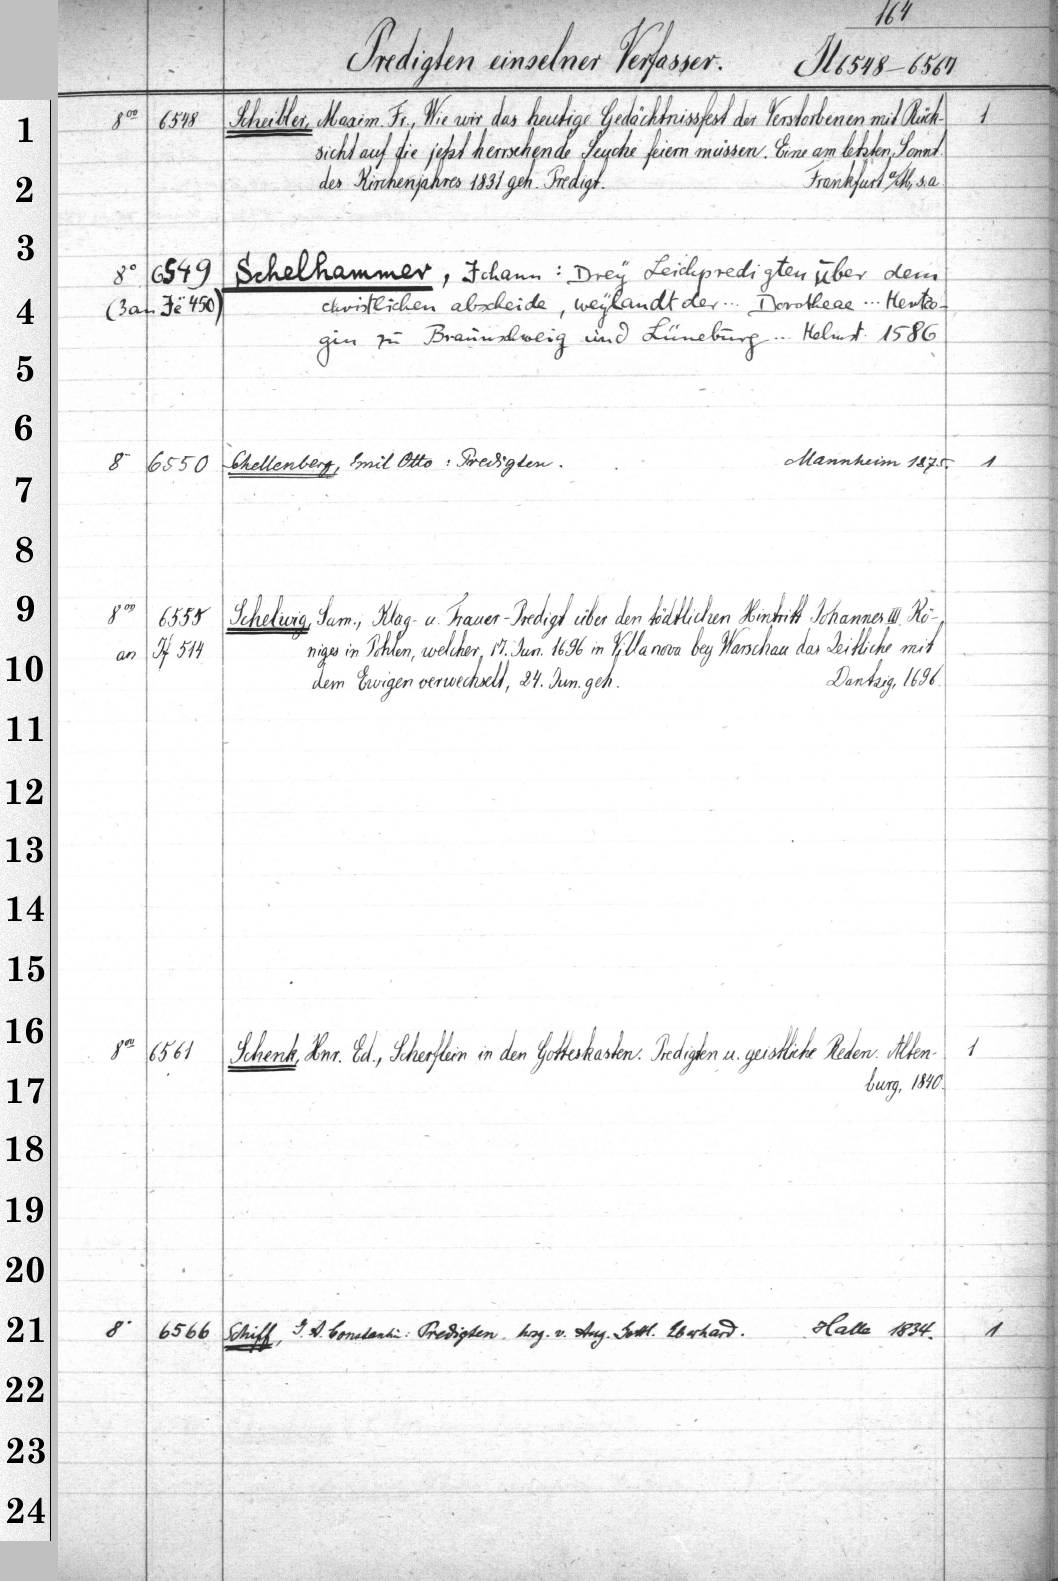 164
Predigten einzelner Verfasser. Il 6548-6567
1 8vo 6548 Scheibler, Maxim. Fr., Wie wir das heutige Gedächtnissfest der Verstorbenen mit Rück- 1
sicht auf die jetzt herrschende Seuche feiern müssen. Eine am letzten Sonnt.
2 des Kirchenjahres 1831 geh. Predigt. Frankfurt a/M, s.a.
3
8° 6549 Schelhammer, Johann: Drey Leichpredigten über dem
4 (3 an Je 450) christlichen abscheide, weylandt der ... Dorotheae ... Hertzo-
gin zu Braunschweig und Lüneburg ... Helmst. 1586
5
6
8° 6550 Schellenberg, Emil Otto: Predigten. Mannheim 1875. 1
7
8
9 8vo 6555 Schelwig, Sam., Klag- u. Trauer-Predigt über den tödtlichen Hintritt Johannes III, Kö-
an 514 niges in Pohlen, welcher, 17. Jun. 1696 in Villa nova bey Warschau das Zeitliche mit
10 dem Ewigen verwechselt, 24. Jun. geh. Dantzig, 1696.
11
12
13
14
15
16
8vo 6561 Schenk, Hnr. Ed., Scherflein in den Gotteskasten. Predigten u. geistliche Reden. Alten- 1
17 burg, 1840.
18
19
20
21 8° 6566 Schiff, Constantin: Predigten hrsg. v. Aug. Gottl. Eberhard. Halle 1834. 1
22
23
24